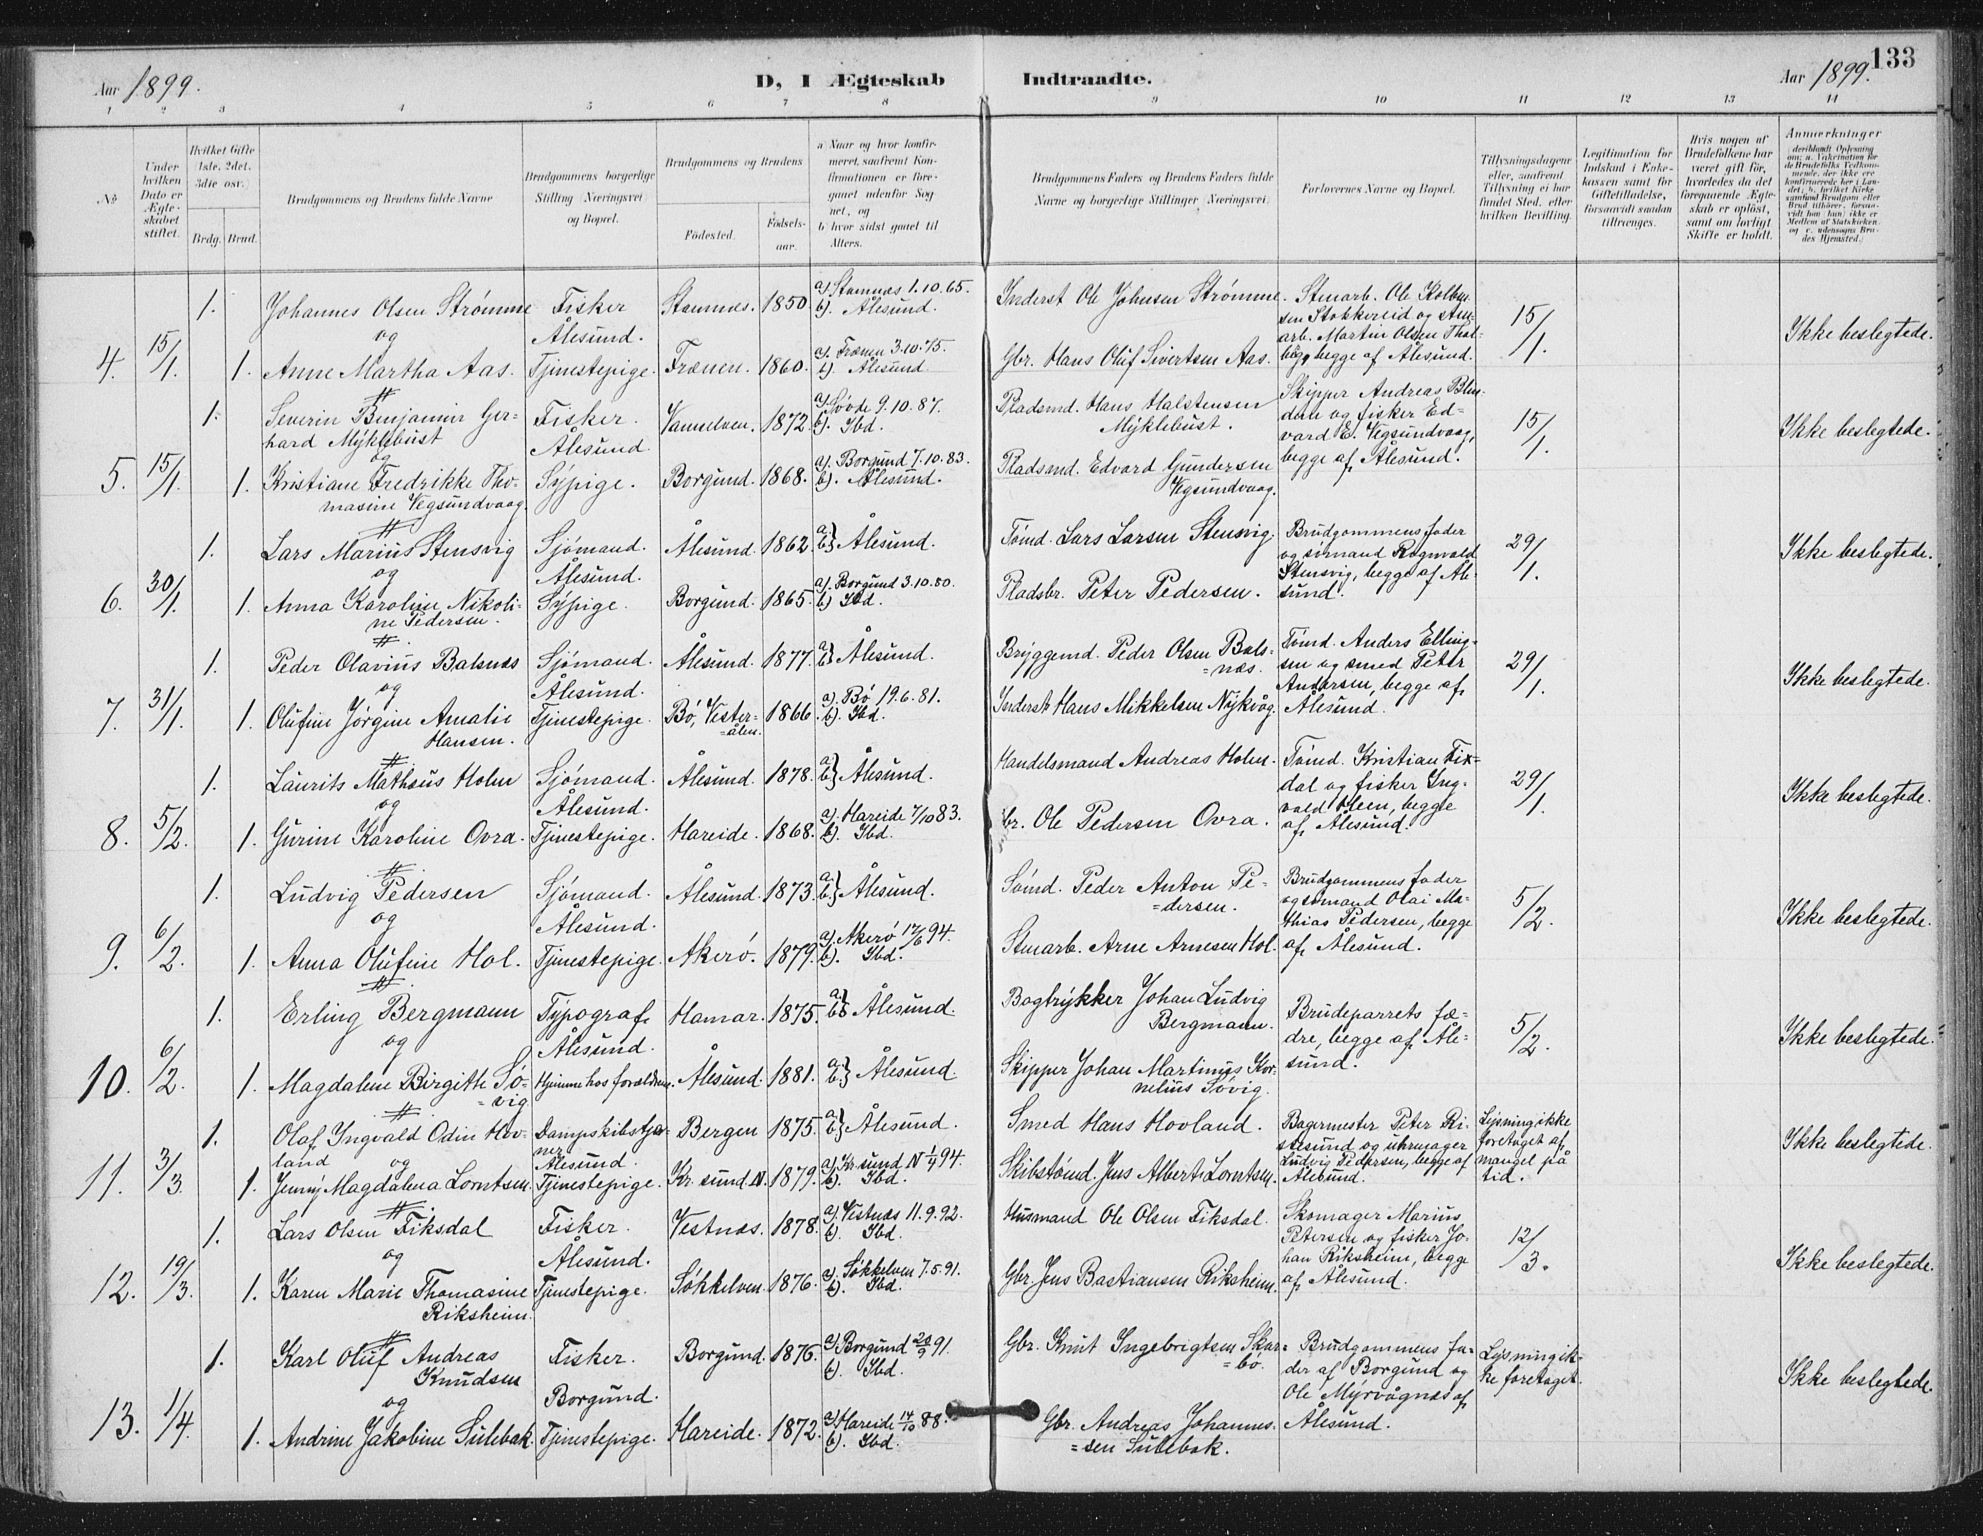 133
Aar 1899. D, I Ægteskab Indtraadte. Aar 1899.
1 2 3 4 5 6 7 8 9 10 11 12 13 14
No.
Under hvilken Dato er Ægteskabet stiftet.
Hvilket Gifte 1ste, 2det, 3die osv.
Brdg. Brud.
Brudgommens og Brudens fulde Navne
Brudgommens borgerlige Stilling Næringsvei og Bopæl.
Brudgommens og Brudens
Fødested. Fødselsaar.
a Naar og hvor konfirmeret, saafremt Konfirmationen er foregaaet udenfor Sognet, og
b hvor sidst gaaet til Alters.
Brudgommens Faders og Brudens Faders fulde Navne og borgerlige Stillinger (Næringsvei)
Forlovernes Navne og Bopæl.
Tillysningsdagene eller, saafremt Tillysning ei har fundet Sted, efter hvilken Bevilling.
Legitimation for Indskud i Enkekassen samt for Giftetilladelse, forsaavidt saadan tiltrænges.
Hvis nogen af Brudefolkene har været gift før, hvorledes da det foregaaende Ægteskab er opløst, samt om lovligt Skifte er holdt.
Anmærkninger
(deriblandt Oplysning om: a. Vakcination for de Brudefolks Vedkommende, der ikke ere konfirmerede her i Landet; b. hvilket Kirkesamfund Brudgom eller Brud tilhører, forsaavidt han (hun) ikke er Medlem af Statskirken, og c. udensogns Brudes Hjemsted.)
4. 15/1.
1. Johannes Olsen Strømme Fisker Ålesund. Stamnes. 1850. a). Stamnes 1.10.65. b). Ålesund. Inderst Ole Johnsen Strømme.
og
1. Anne Martha Aas. Tjenestepige. Frænen. 1860. a). Frænen 3.10.75. b) Ålesund Gbr. Hans Oluf Sivertsen Aas.
Stenarb. Ole
sen Stokkereid og sten-
arb. Martin Olsen Thol-
begge af Ålesund.
15/1.
Ikke beslegtede.
5. 15/1.
1. Severin Benjamin Ger-
hard Myklebust Fisker. Ålesund Vannelven. 1872. a) Søvde 9.10.87. b). Ibd. Pladsmd. Hans Halstensen
Myklebust.
og
1. Kristiane Fredrikke Tho-
masine Vegsundvaag. Sypige. Borgund. 1868. a). Borgund 7.10.83. b). Ålesund. Pladsmd. Edvard Gundersen
Vegsundvaag.
Skipper Andreas Blin-
dem og fisker Ed-
vard E. Vegsundvaag,
begge af Ålesund.
15/1.
Ikke beslegtede.
6. 30/1.
1. Lars Marius Stensvig Sjømand. Ålesund. Ålesund. 1862 a} b} Ålesund. Tømd. Lars Larsen Stensvig.
og
1. Anna Karoline Nikoli-
ne Pedersen. Sypige. Borgund. 1865. a). Borgund 3.10.80. b) Ibd. Pladsbr. Peter Pedersen.
Brudgommens fader
og sømand Ragnvald
Stensvig, begge af Åle-
sund.
29/1.
Ikke beslegtede.
7. 31/1.
1. Peder Olavius Balsnæs Sjømand. Ålesund. Ålesund. 1877. a} b} Ålesund. Bryggemd. Peder Olsen Bals-
=næs.
og
1. Olufine Jørgine Amalie
Hansen. Tjenestepige. Bø, Vester-
=ålen. 1866. a). Bø 19.6.81. b). Ibd. Inderst Hans Mikkelsen Nykvåg.
Tømd. Anders Elling-
sen og smed Peter
Andersen, begge af
Ålesund.
29/1.
Ikke beslegtede.
8. 5/2.
1. Laurits Mathæus Holm Sjømand. Ålesund. Ålesund. 1878. a} b} Ålesund. Handelsmand Andreas Holm.
og
1. Gurine Karoline Ovra. Tjenestepige. Hareide. 1868. a). Hareide 7/10 83. b). Ibd. br. Ole Pedersen Ovra.
Tømd. Kristian Fix-
dal og fisker Yng-
vald Olsen, begge
af Ålesund.
29/1.
Ikke beslegtede.
9. 6/2.
1. Ludvig Pedersen Sjømand. Ålesund. Ålesund. 1873. a} b} Ålesund. Sømd. Peder Anton Pe-
=dersen.
og
1. Anna Olufine Hol. Tjenestepige. Akerø. 1879. a). Akerø 17/6 94. b). Ibd. Stenarb. Arne Arnesen Hol.
Brudgommens fader
og sømand Olai Ma-
thias Pedersen, begge
af Ålesund.
5/2.
Ikke beslegtede.
10. 6/2.
1. Erling Bergmann Typograf, Ålesund. Hamar. 1875. a} b} Ålesund. Bogtrykker Johan Ludvig
Bergmann.
og
1. Magdalene Birgitte Sø-
=vig. Hjemme hos forældrene. Ålesund. 1881. a} b} Ålesund. Skipper Johan Martinus Kor-
nelius Søvig.
Brudeparrets fæ-
dre, begge af Åle-
sund.
5/2.
Ikke beslegtede.
11. 3/3.
1. Olaf Yngvald Odin Hov-
land Dampskibstje-
ner Ålesund. Bergen 1875. a} b} Ålesund. Smed Hans Hovland.
og
1. Jenny Magdalena Lorntsen. Tjenestepige. Kr.sund. N. 1879. a). Kr.sund N 94. b). Ibd. Skibstømd. Jens Albert Lorntsen.
Bagermester Peter Ri-
stesund og uhrmager
Ludvig Pedersen, begge af
Ålesund.
Lysning ikke
foretaget af
mangel på
tid.
Ikke beslegtede.
12. 19/3.
1. Lars Olsen Fiksdal Fisker. Ålesund. Vestnæs. 1878. a). Vestnæs 11.9.92. b). Ibd. Husmand Ole Olsen Fiksdal.
og
1. Karen Marie Thomasine
Riksheim. Tjenestepige. Søkkelven. 1876. a). Søkkelven 7.5.91. b). Ibd. Gbr. Jens Bastiansen Riksheim.
Skomager Marius
Petersen og fisker Jo-
han Riksheim, begge
af Ålesund.
12/3.
Ikke beslegtede.
13. 1/4.
1. Karl Oluf Andreas
Knudsen Fisker. Borgund. Borgund. 1876. a) Borgund 91. b). Ibd. Gbr. Knut Ingebrigtsen Skar-
=bø.
og
1. Andrine Jakobine Sulebak. Tjenestepige. Hareide. 1872. a) Hareide 14/10 88. b). Ibd. Gbr. Andreas Johannes-
=sen Sulebak.
Brudgommens fa-
der af Borgund og
Ole Myrvågnæs af
Ålesund.
Lysning ik-
ke foretaget.
Ikke beslegtede.